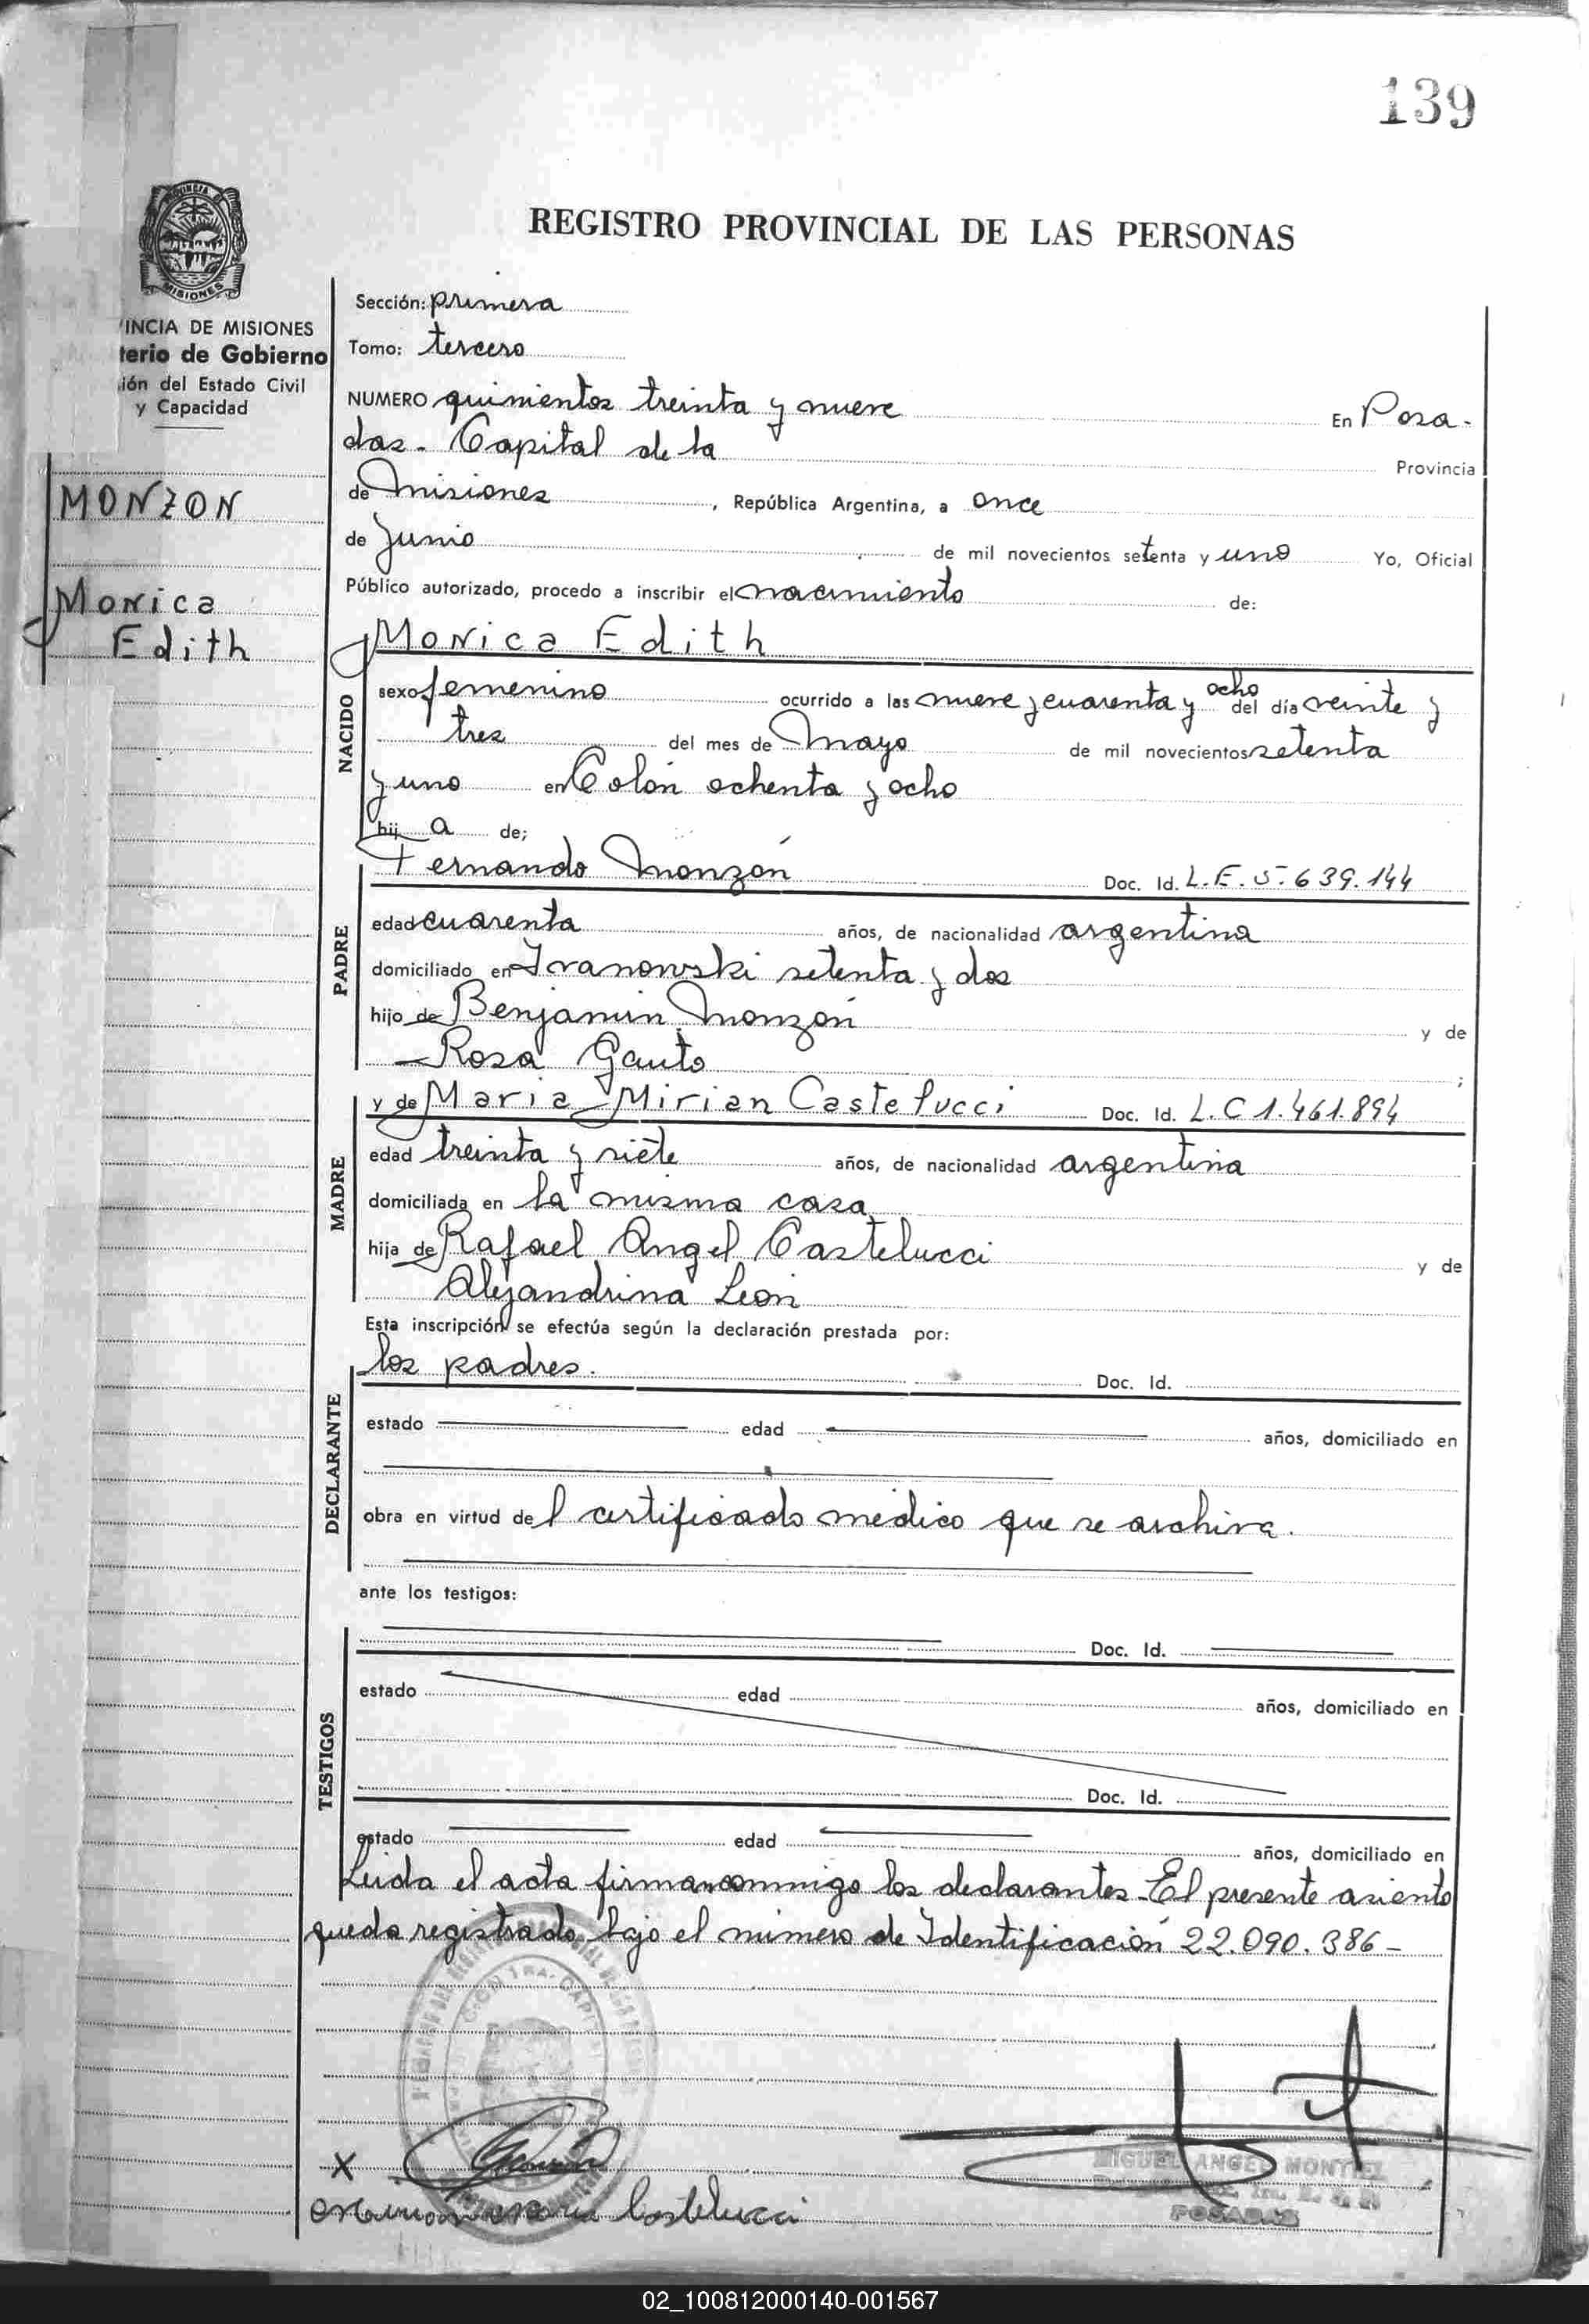 139
REGISTRO PROVINCIAL DE LAS PERSONAS
MISIONES
INCIA DE MISIONES
terio de Gobierno
ión del Estado Civil
y Capacidad
MONZON
Monica
Edith
Sección: primera
Tomo: tercero
NUMERO quinientos treinta y nueve En Posa-
das - Capital de la Provincia
de Misiones, República Argentina, a once
de Junio de mil novecientos setenta y uno Yo, Oficial
Público autorizado, procedo a inscribir el nacimiento de:
Monica Edith
NACIDO
sexo femenino ocurrido a las nueve y cuarenta y ocho del día veinte y
tres del mes de Mayo de mil novecientos setenta
y uno en Colón ochenta y ocho
hij a de;
PADRE
Fernando Monzón Doc. Id. L.E. 5.639.144
edad cuarenta años, de nacionalidad argentina
domiciliado en Ivanowski setenta y dos
hijo de Benjamin Monzón y de
Rosa Gauto ;
MADRE
y de Maria Mirian Castelucci Doc. Id. L.C 1.461.894
edad treinta y siete años, de nacionalidad argentina
domiciliada en la misma casa
hija de Rafael Angel Castelucci y de
Alejandrina Leon
Esta inscripción se efectúa según la declaración prestada por:
DECLARANTE
los padres. Doc. Id.
estado edad años, domiciliado en
obra en virtud del certificado medico que se archiva.
ante los testigos:
TESTIGOS
Doc. Id.
estado edad años, domiciliado en
Doc. Id.
estado edad años, domiciliado en
Leida el acta firman conmigo los declarantes. El presente asiento
queda registrado bajo el número de Identificación 22.090.386-
X
Castelucci
MIGUEL ANGEL MONTIEL
POSADAS
02_100812000140-001567